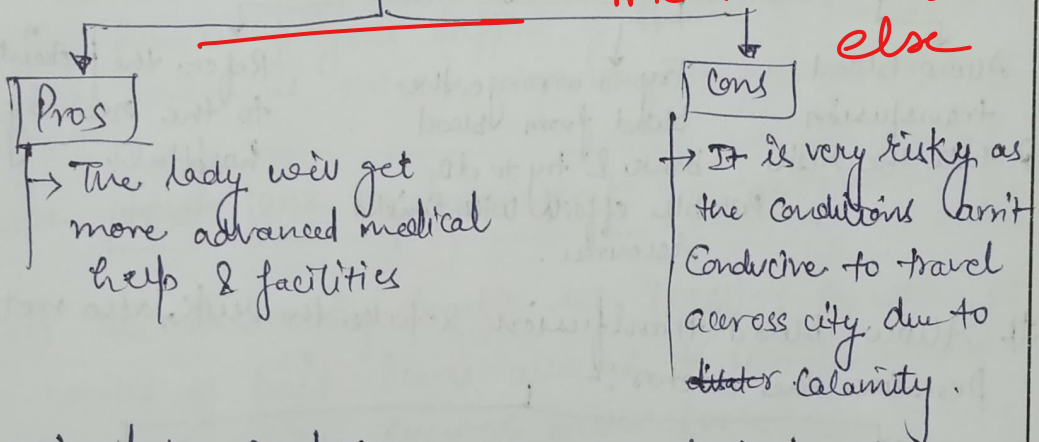 else
Pros
→ The lady will get
more advanced medical
help & facilities
Cons
→ It is very risky as
the conditions arn't
Conducive to travel
accross city due to
calamity.